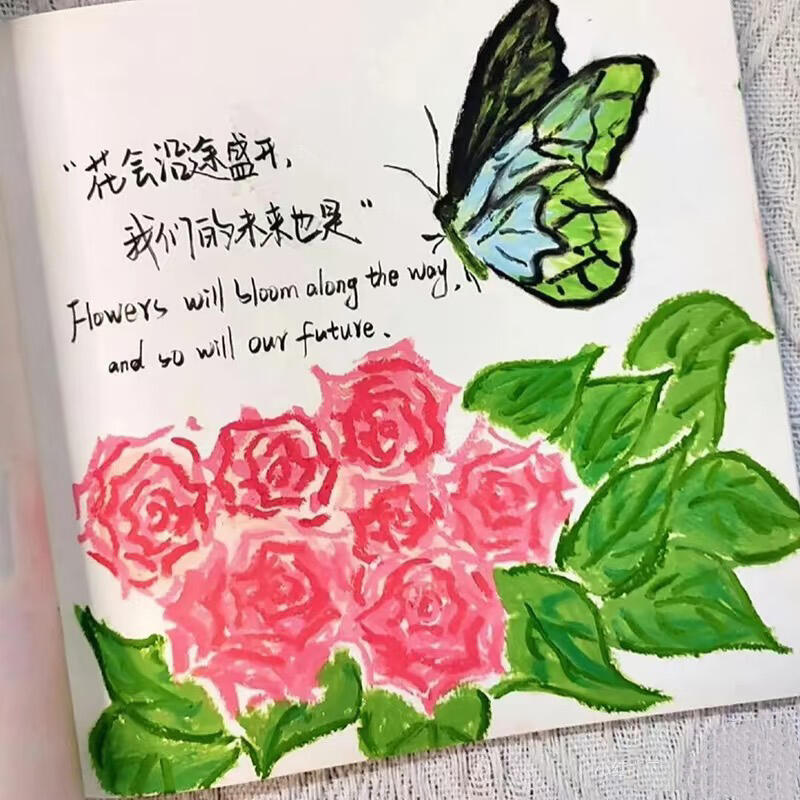 “花会沿途盛开,
我们的未来也是”
Flowers will bloom along the way,
and so will our future.